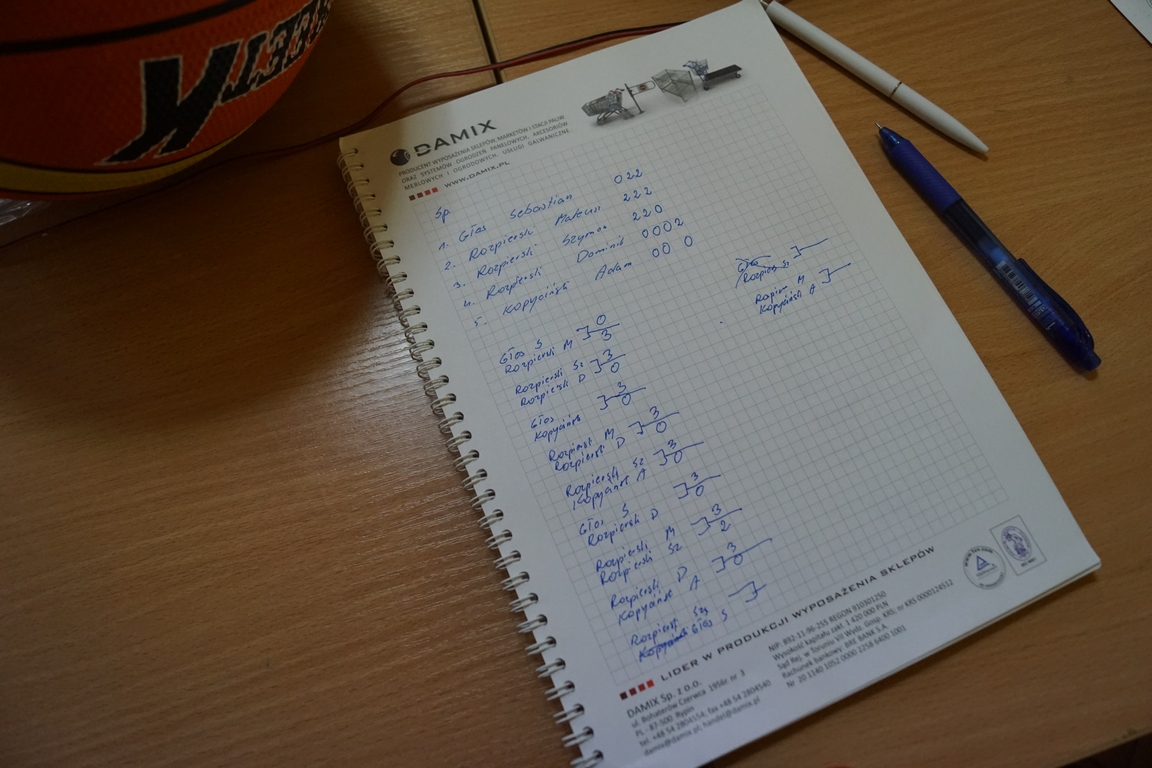 STREET K
DAMIX
PRODUCENT WYPOSAŻENIA SKLEPÓW, MARKETÓW I STACJI PALIW
ORAZ SYSTEMÓW OGRODZEŃ PANELOWYCH, AKCESORIÓW
MEBLOWYCH I OGRODOWYCH, USŁUGI GALWANICZNE
WWW.DAMIX.PL
Sp
1. Głos Sebastian 022
2. Rozpierski Mateusz 222
3. Rozpierski Szymon 220
4. Rozpierski Dominik 0002
5. Kopyciński Adam 00 0
Rozpiers Sz
Rapier M
Kopyciński A
Głos S 0
Rozpierski M 3
Rozpierski Sz 3
Rozpierski D 0
Głos 3
Kopyciński 0
Rozpierski M 3
Rozpierski D 0
Rozpierski Sz 3
Kopyciński A 0
Głos S 3
Rozpierski D 0
Rozpierski M 3
Rozpierski Sz 2
Rozpierski D 3
Kopyciński A 0
Rozpierski Szy
Głos S
LIDER W PRODUKCJI WYPOSAŻENIA SKLEPÓW
DAMIX Sp. z o.o.
ul. Bohaterów Czerwca 1956r. nr 3
PL - 87-500 Rypin
tel. +48 54 2804154, fax +48 54 2804540
damix@damix.pl, handel@damix.pl
NIP: 892-11-96-255 REGON 910301250
Wysokość kapitału zakł. 1 420 000 PLN
Sąd Rej. w Toruniu VII Wydz. Gosp. KRS, nr KRS 0000124512
Rachunek bankowy: BRE BANK S.A.
Nr 20 1140 1052 0000 2258 6400 1001